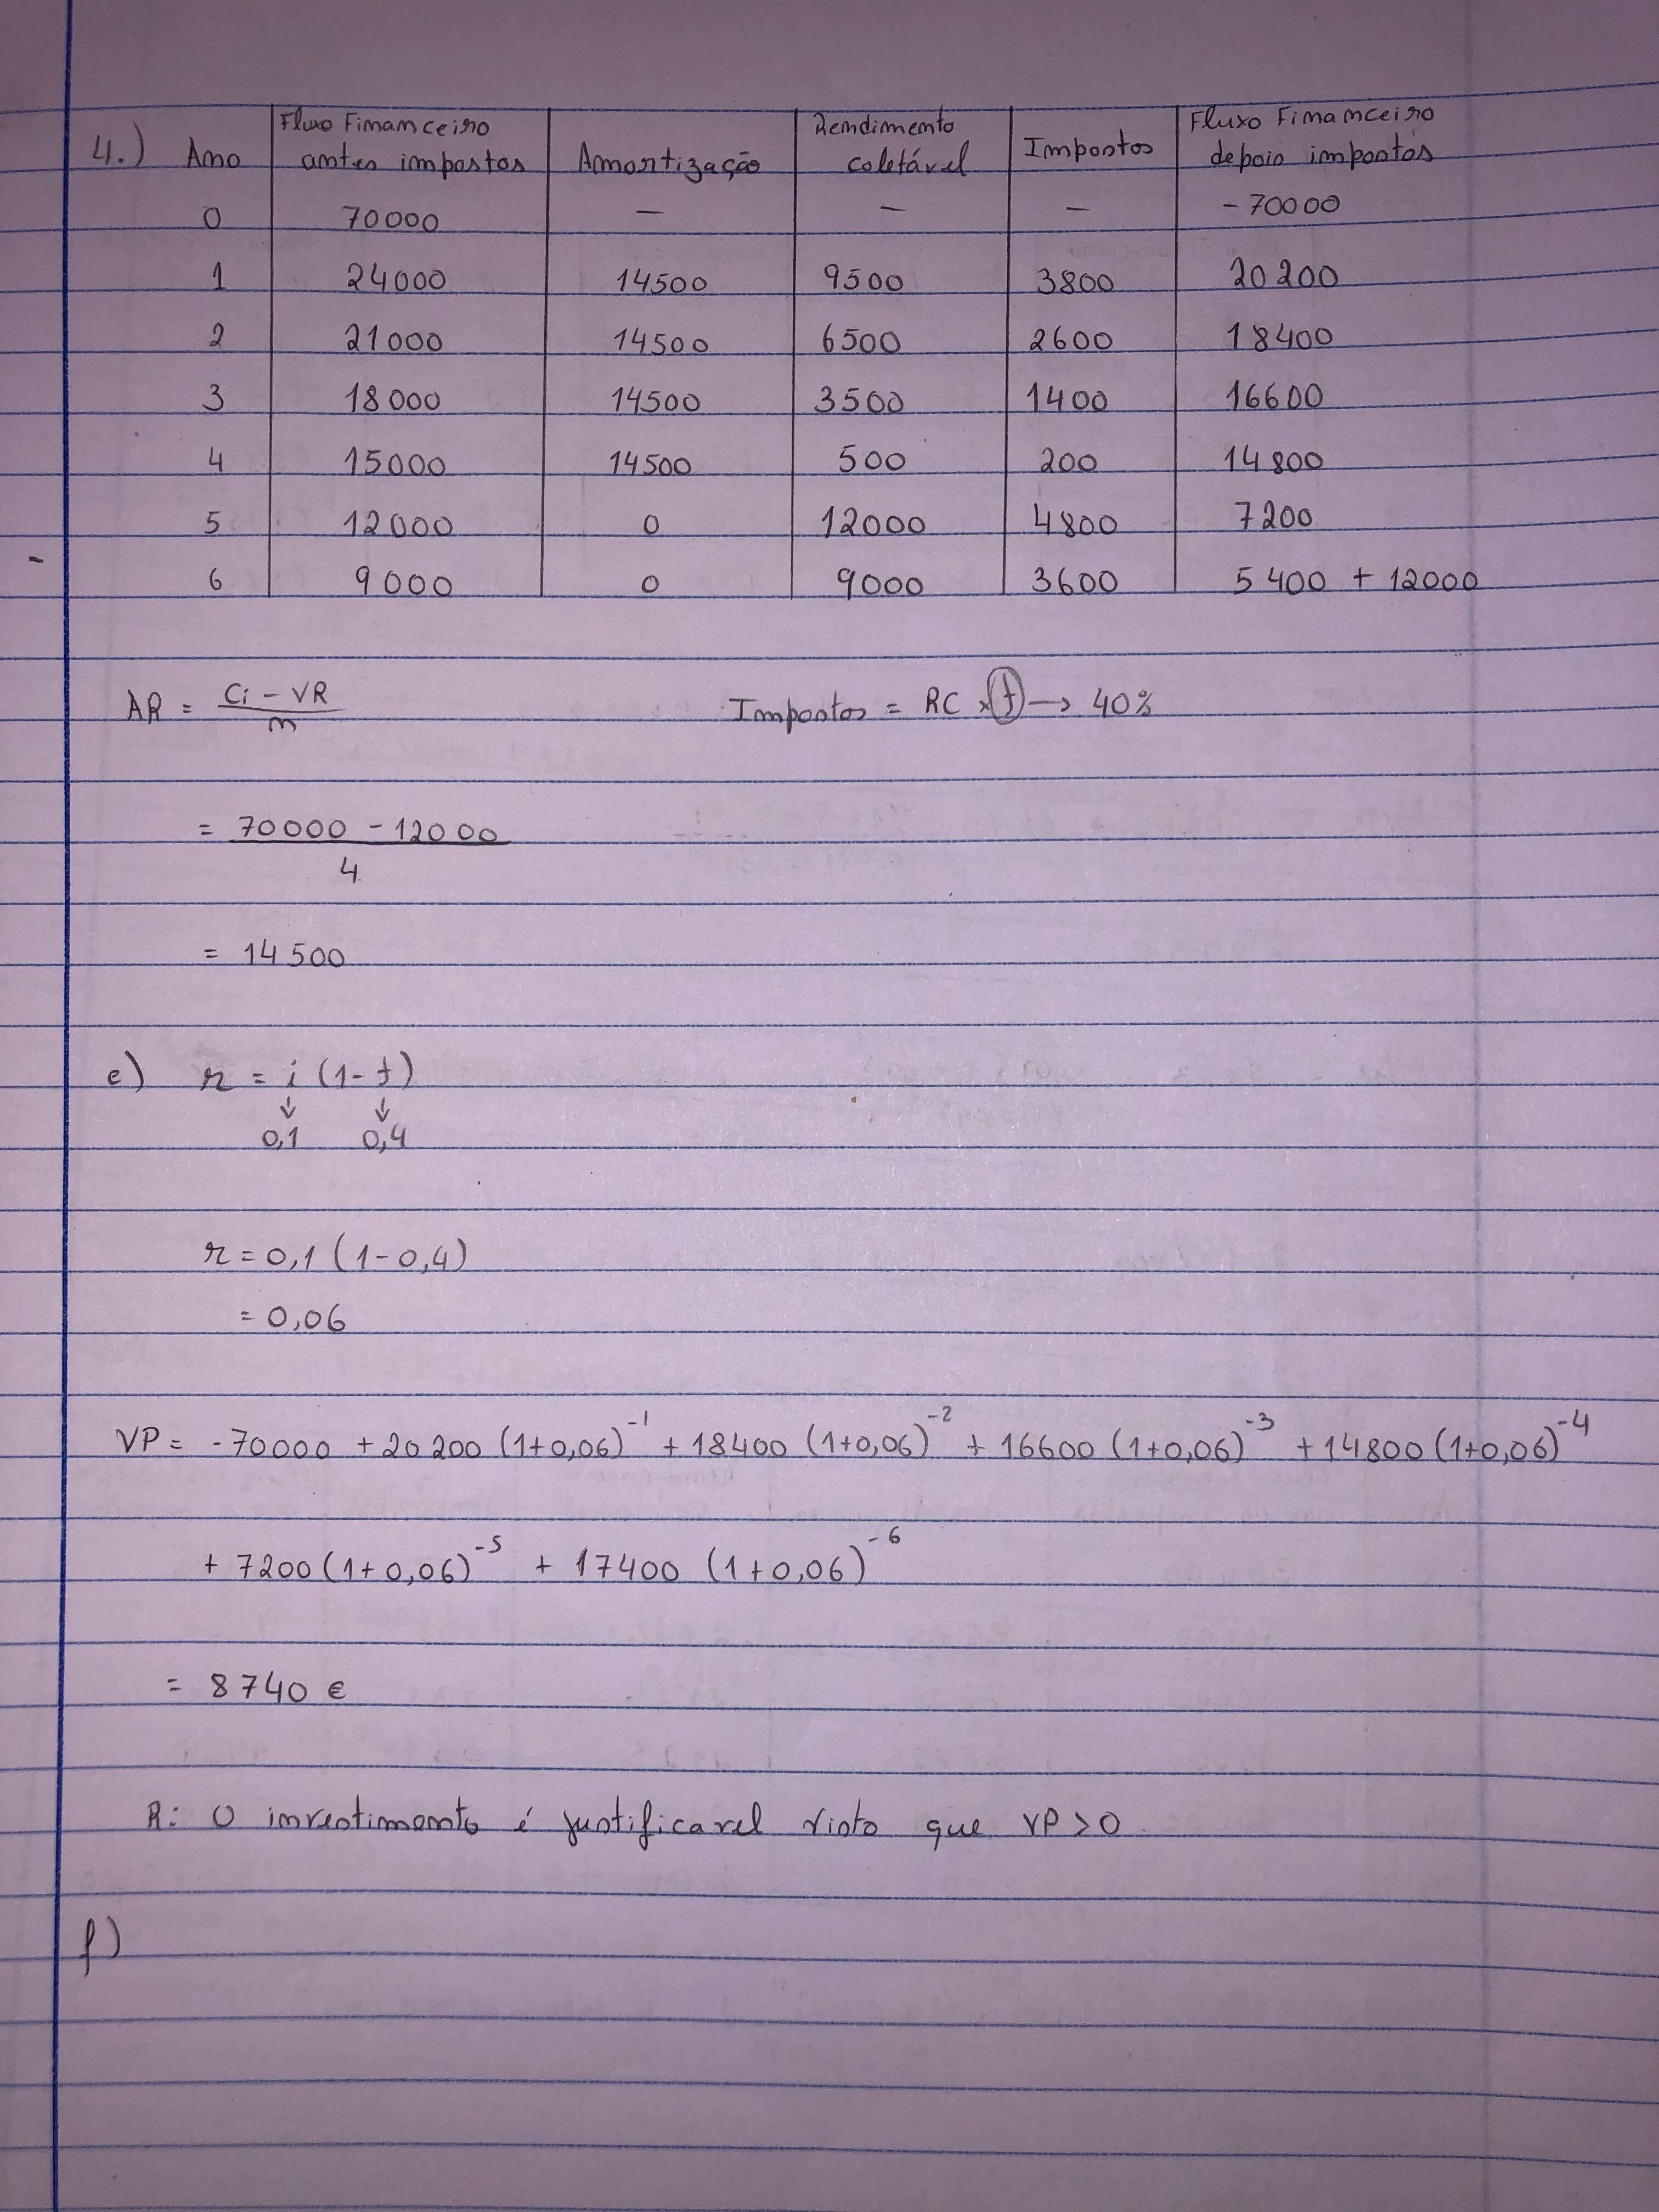 4.) Ano | Fluxo Financeiro antes impostos | Amortização | Rendimento coletável | Impostos | Fluxo Financeiro depois impostos
0 | 70000 | — | — | — | - 70000
1 | 24000 | 14500 | 9500 | 3800 | 20200
2 | 21000 | 14500 | 6500 | 2600 | 18400
3 | 18000 | 14500 | 3500 | 1400 | 16600
4 | 15000 | 14500 | 500 | 200 | 14800
5 | 12000 | 0 | 12000 | 4800 | 7200
6 | 9000 | 0 | 9000 | 3600 | 5400 + 12000
AR = (Ci - VR) / n    Impostos = RC × t → 40%
= (70000 - 12000) / 4
= 14500
e) r = i (1 - t)
↓ ↓
0,1 0,4
r = 0,1 (1 - 0,4)
= 0,06
VP = - 70000 + 20200 (1+0,06)^-1 + 18400 (1+0,06)^-2 + 16600 (1+0,06)^-3 + 14800 (1+0,06)^-4
+ 7200 (1+0,06)^-5 + 17400 (1+0,06)^-6
= 8740 €
R: O investimento é justificavel visto que VP > 0.
f)